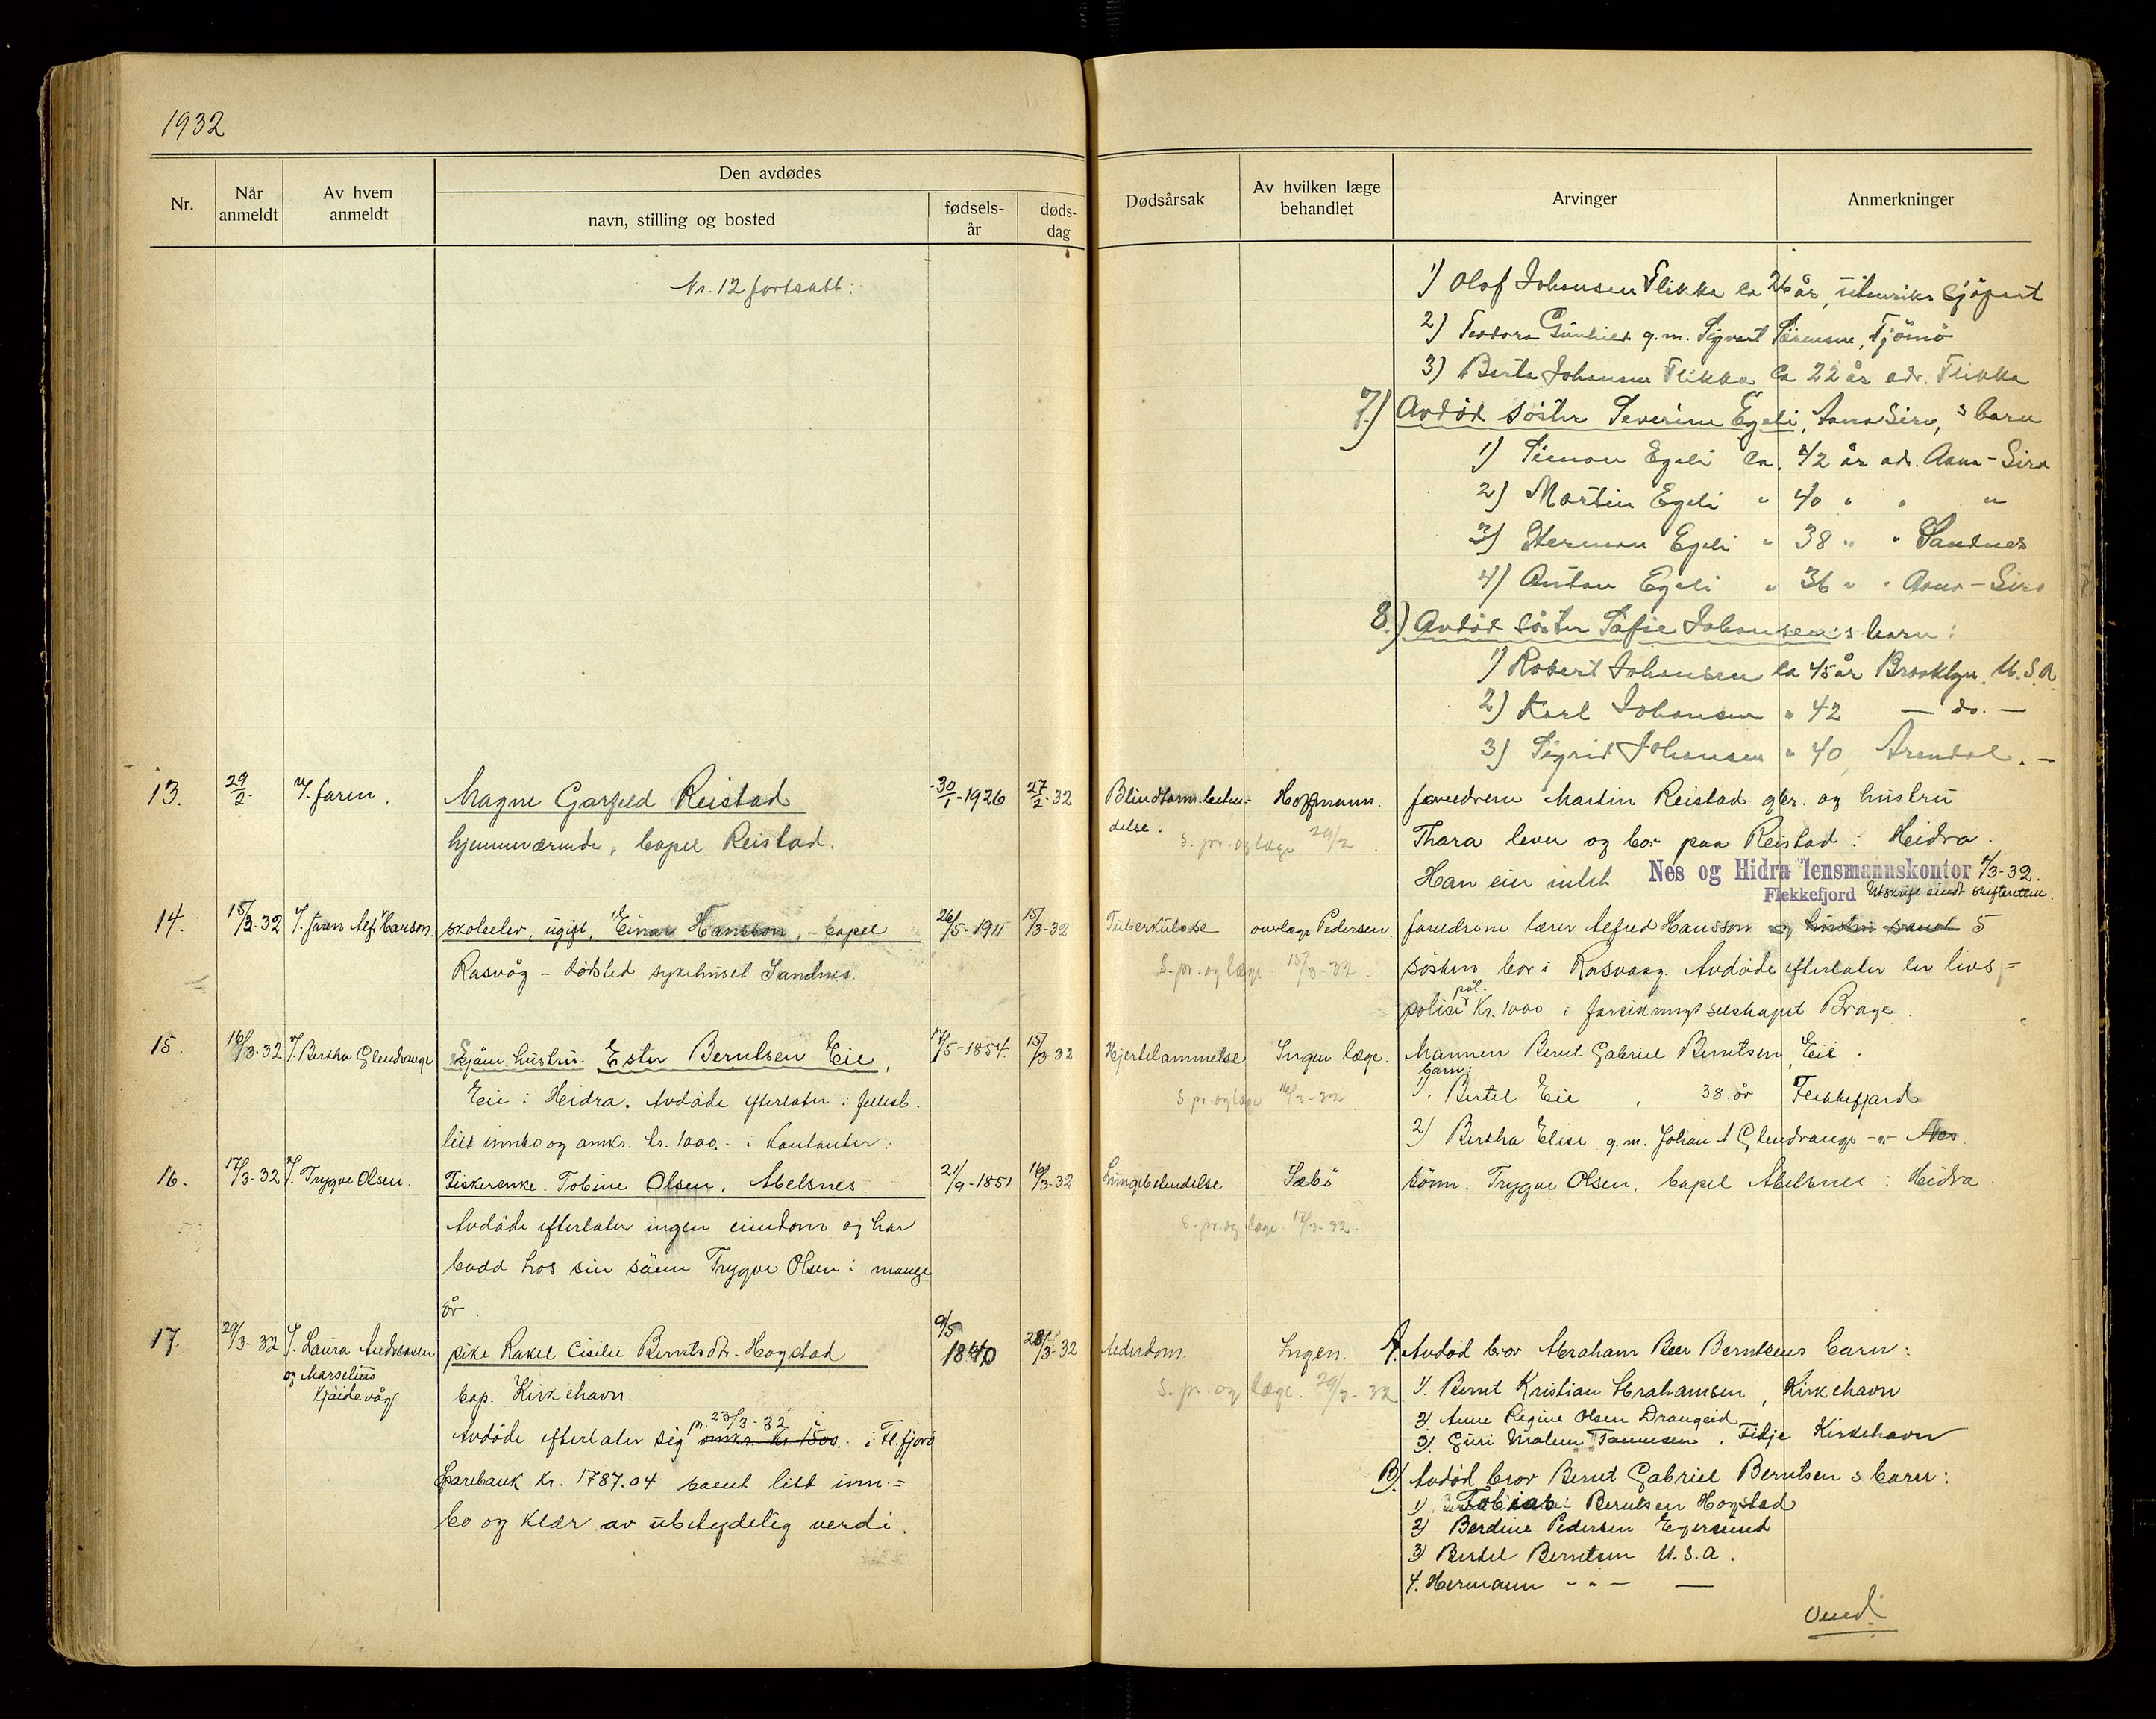 1932
Nr.
Når anmeldt
Av hvem anmeldt
Den avdødes
navn, stilling og bosted
fødsels-år
døds-dag
Dødsårsak
Av hvilken læge behandlet
Arvinger
Anmerkninger
Nr. 12 fortsatt:
1) Olaf Johansen Flikka ca 26 år, utenriks sjöfart
2) Teodora Gunhild g.m. Sigvart Sörensen, Tjömö
3) Berta Johansen Flikka ca 22 år adr. Flikka
7.) Avdöd söster Severine Egeli, Aana Sira, s barn
1) Simon Egeli ca. 42 år adr. Aana-Sira
2) Martin Egeli " 40 " " "
3) Herman Egeli " 38 " " Sandnes
4) Anton Egeli " 36 " " Aana-Sira
8.) Avdöd söster Sofie Johansen's barn:
1) Robert Johansen ca 45 år Brooklyn U.S.A.
2) Karl Johansen " 42 — do. —
3) Sigrid Johansen " 40, Arendal. —
13. 29/2. v/ faren. Magne Garfeld Reistad 30/1-1926 27/2-32 Blindtarmbeten- Hoffmann. foreldrene Martin Reistad gbr. og hustru
delse.
hjemmeværende, bopel Reistad. s. pr. og læge 29/2. Thora lever og bor paa Reistad i Heidra.
Han eier intet Nes og Hidra lensmannskontor 1/3-32.
Flekkefjord Utskrift sendt skifteretten.
14. 15/3-32 v/ faren Alf. Hanson. skoleelev, ugift, Einar Hansson, - bopel 26/5-1911 15/3-32 Tuberkulose overlæge Pedersen foreldrene lærer Alfred Hansson og hustru samt 5
Rasvåg - dödsted sykehuset Sandnes. s. pr. og læge 15/3-32. sösken bor i Rasvaag. Avdöde efterlater en livs=
pål.
polise Kr. 1000 i forsikringsselskapet Brage.
15. 16/3-32 v/ Bertha Glendrange Gjäm. hustru Ester Berntsen Eie, 17/5-1854. 15/3-32 Hjertelammelse Ingen læge. Mannen Bernt Gabriel Berntsen, Eie.
barn:
Eie i Heidra. Avdöde efterlater i fellesb. s. pr. og læge 16/3-32 1. Bertel Eie, 38 år Flekkefjord
litt innbo og omkr. kr. 1000.- i kontanter. 2) Bertha Elise g.m. Johan A Glendrange -"- Nes.
16. 17/3-32 v/ Trygve Olsen. Fiskerenke Tobine Olsen, Abelsnes 21/9-1851 16/3-32 Lungebetendelse Sæbö sönn. Trygve Olsen, bopel Abelsnes i Heidra.
Avdöde efterlater ingen eiendom og har s. pr. og læge. 17/3-32.
bodd hos sin sönn Trygve Olsen i mange
år.
17. 29/3-32 v/ Laura Andreasen pike Rakel Cisilie Berntsdtr. Hogstad 9/5 1840 28/3-32 Alderdom. Ingen. A. Avdöd bror Abraham Beer Berntsens barn:
og Marselius
Kjeidevåg
bop. Kirkehavn. s. pr. og læge. 29/3-32 1. Bernt Kristian Abrahamsen, Kirkehavn
2) Anne Regine Olsen Drangeid
pr. 23/3-32
Avdöde efterlater sig omkr. kr. 1500.- i Fl.fjord 3) Guri Malene Tönnesen, Fitje Kirkehavn
Sparebank Kr. 1787.04 samt litt inn.= B) Avdöd bror Bernt Gabriel Berntsen s barn:
1) Tobias Berntsen Hogstad
bo og klær av ubetydelig verdi. 2) Berdine Pedersen Egersund
3) Bertel Berntsen U.S.A.
4. Hermann - " - —
vend.